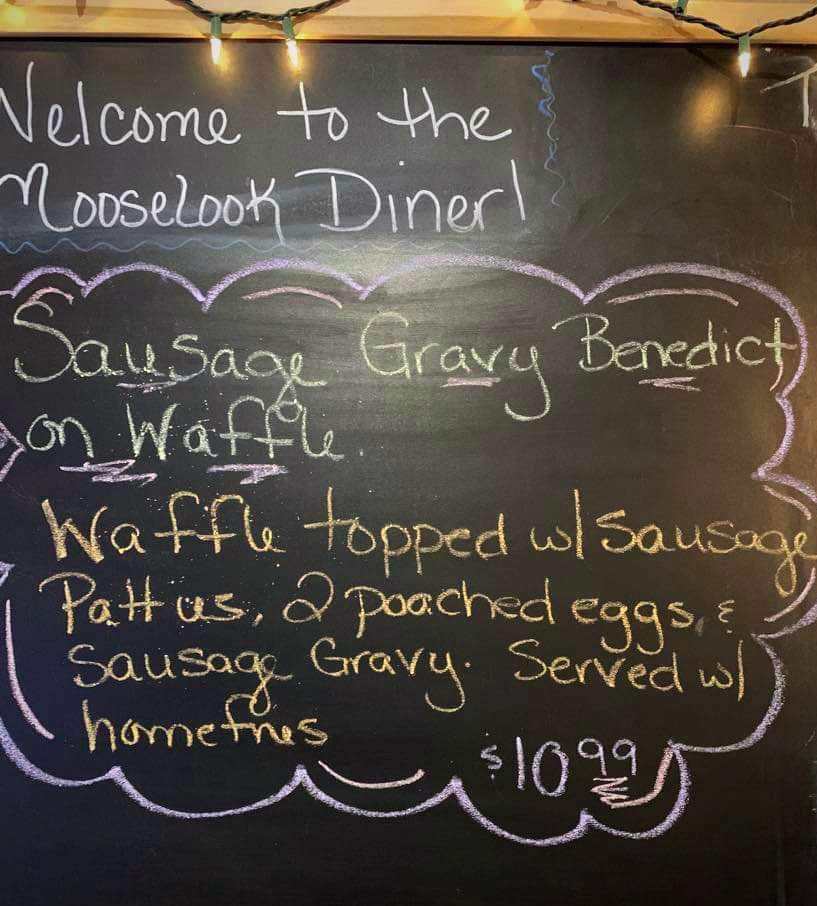 Welcome to the
Mooselook Diner!
Sausage Gravy Benedict
on Waffle.
Waffle topped w/ Sausage
Patties, 2 poached eggs, &
Sausage Gravy. Served w/
homefries
$10.99